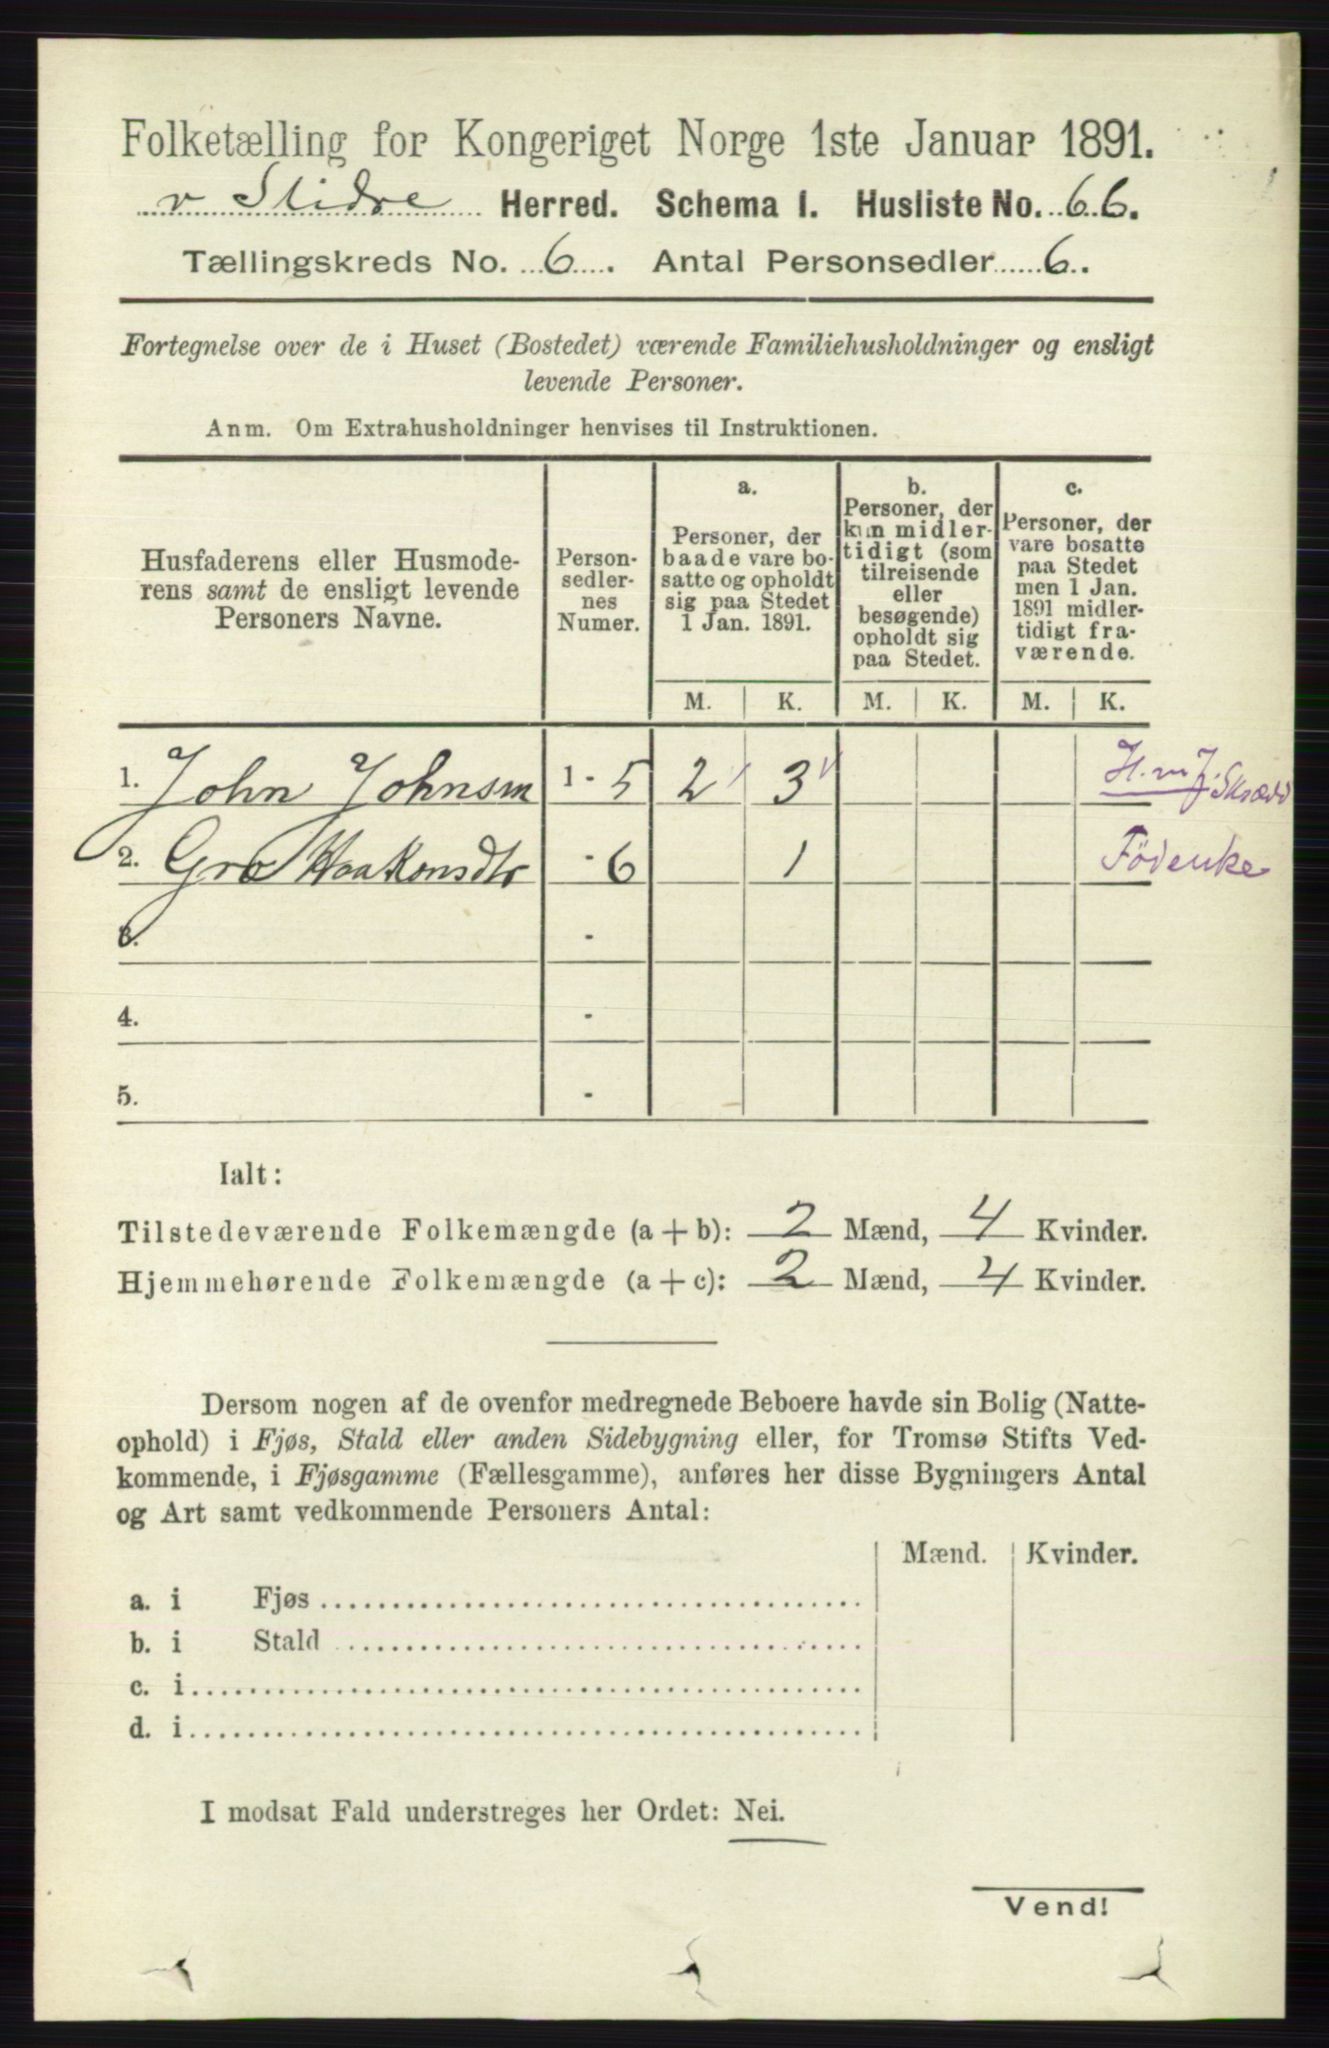 Folketælling for Kongeriget Norge 1ste Januar 1891.
v Slidre Herred. Schema I. Husliste No. 66.
Tællingskreds No. 6. Antal Personsedler 6.
Fortegnelse over de i Huset (Bostedet) værende Familiehusholdninger og ensligt
levende Personer.
Anm. Om Extrahusholdninger henvises til Instruktionen.
Husfaderens eller Husmode-
rens samt de ensligt levende
Personers Navne.
Person-
sedler-
nes
Numer.
a.
Personer, der
baade vare bo-
satte og opholdt
sig paa Stedet
1 Jan. 1891.
b.
Personer, der
kun midler-
tidigt (som
tilreisende
eller
besøgende)
opholdt sig
paa Stedet.
c.
Personer, der
vare bosatte
paa Stedet
men 1 Jan.
1891 midler-
tidigt fra-
værende.
M. K. M. K. M. K.
1. John Johnsen 1 - 5 2 3 H. m J. Skræd
2. Gro Haakonsdtr - 6 1 Födenke
3. -
4. -
5. -
Ialt:
Tilstedeværende Folkemængde (a + b): 2 Mænd, 4 Kvinder.
Hjemmehørende Folkemængde (a + c): 2 Mænd, 4 Kvinder.
Dersom nogen af de ovenfor medregnede Beboere havde sin Bolig (Natte-
ophold) i Fjøs, Stald eller anden Sidebygning eller, for Tromsø Stifts Ved-
kommende, i Fjøsgamme (Fællesgamme), anføres her disse Bygningers Antal
og Art samt vedkommende Personers Antal:
Mænd. Kvinder.
a. i Fjøs
b. i Stald
c. i
d. i
I modsat Fald understreges her Ordet: Nei.
Vend!